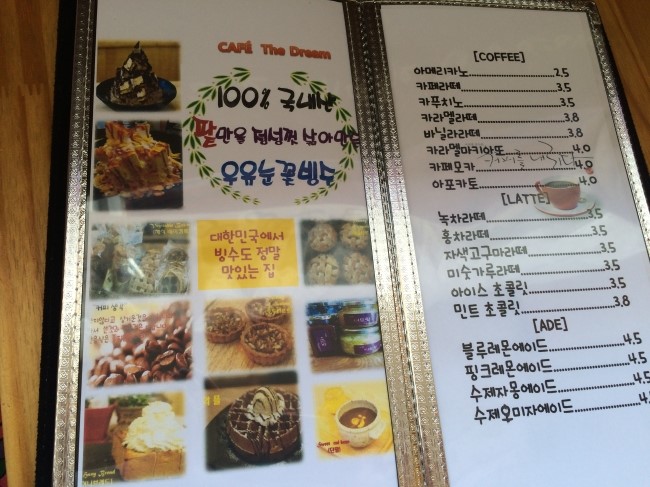 CAFÉ The Dream
100% 국내산
팥만을 정성껏 삶아만든
우유눈꽃빙수
대한민국에서
빙수도 정말
맛있는 집
[COFFEE]
아메리카노 2.5
카페라떼 3.5
카푸치노 3.5
카라멜라떼 3.8
바닐라라떼 3.8
카라멜마키아또 4.0
카페모카 4.0
아포카토 4.0
[LATTE]
녹차라떼 3.5
홍차라떼 3.5
자색고구마라떼 3.5
미숫가루라떼 3.5
아이스 초콜릿 3.5
민트 초콜릿 3.8
[ADE]
블루레몬에이드 4.5
핑크레몬에이드 4.5
수제자몽에이드 4.5
수제오미자에이드